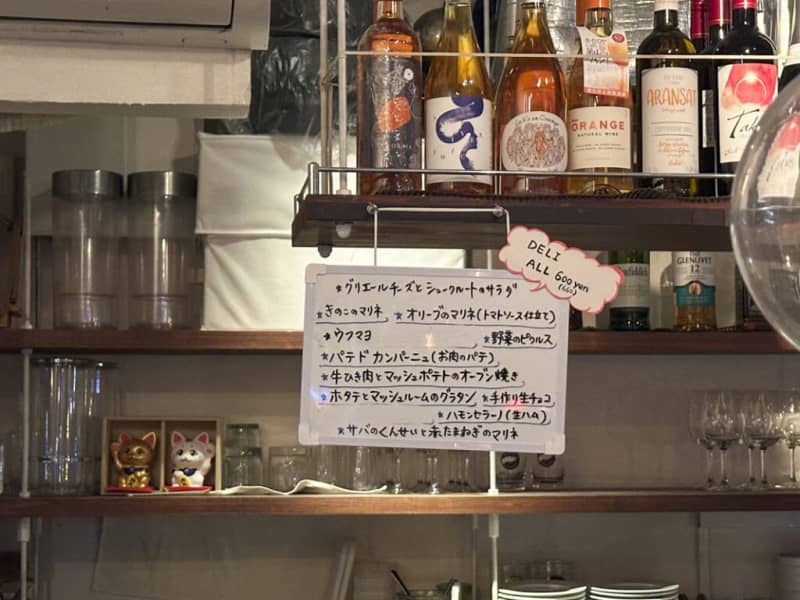 ORANGE
NATURAL WINE
ARANSAT
GLENLIVET
12
DELI
ALL 600yen
★グリエールチーズとシュークルートのサラダ
★きのこのマリネ ★オリーブのマリネ(トマトソース仕立て)
★ウフマヨ ★野菜のピクルス
★パテドカンパーニュ(お肉のパテ)
★牛ひき肉とマッシュポテトのオーブン焼き
★ホタテとマッシュルームのグラタン ★手作り生チョコ
★ハモンセラーノ(生ハム)
★サバのくんせいと赤たまねぎのマリネ